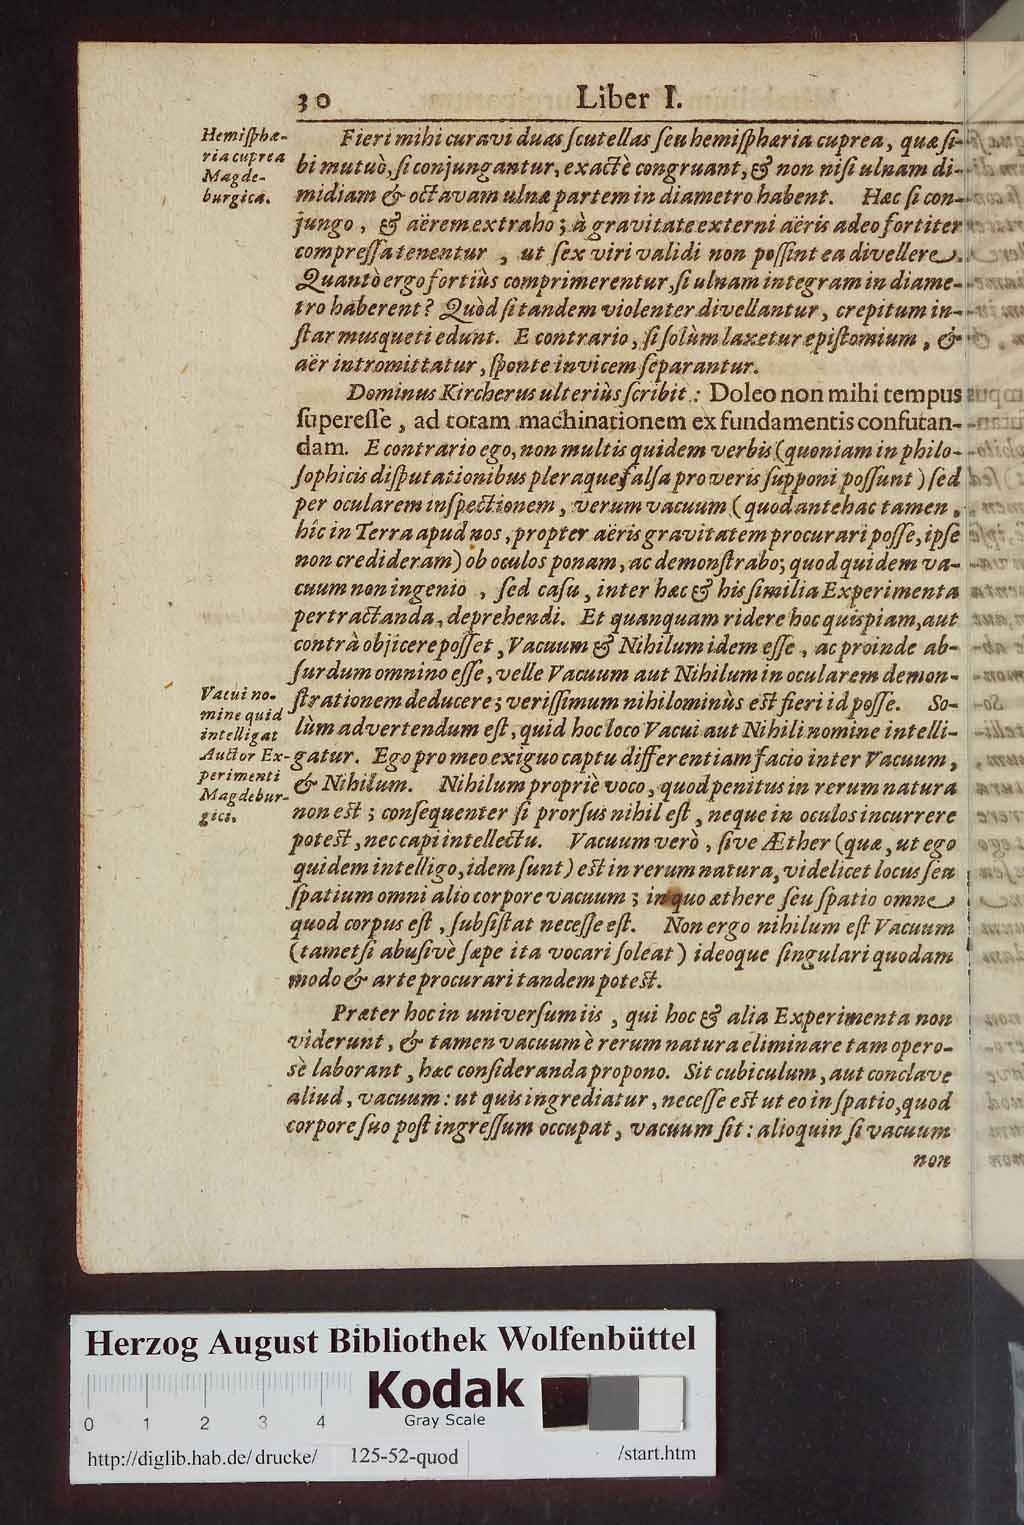 30 Liber I.
Hemiſphæ-
ria cuprea
Magde-
burgica.
Fieri mihi curavi duas ſcutellas ſeu hemiſphæria cuprea, quæ ſi-
bi mutuò, ſi conjungantur, exactè congruant, & non niſi ulnam di-
midiam & octavam ulnæ partem in diametro habent. Hæc ſi con-
jungo, & aërem extraho; à gravitate externi aëris adeo fortiter
compreſſa tenentur, ut ſex viri validi non poſſint ea divellere.
Quantò ergo fortiùs comprimerentur, ſi ulnam integram in diame-
tro haberent? Quòd ſi tandem violenter divellantur, crepitum in-
ſtar musqueti edunt. E contrario, ſi ſolùm laxetur epiſtomium, &
aër intromittatur, ſponte invicem ſeparantur.
Dominus Kircherus ulteriùs ſcribit: Doleo non mihi tempus
ſupereſſe, ad totam machinationem ex fundamentis confutan-
dam. E contrario ego, non multis quidem verbis (quoniam in philo-
ſophicis diſputationibus pleraque falſa pro veris ſupponi poſſunt) ſed
per ocularem inſpectionem, verum vacuum (quod antehac tamen,
hîc in Terra apud nos, propter aëris gravitatem procurari poſſe, ipſe
non credideram) ob oculos ponam, ac demonſtrabo; quod quidem va-
cuum non ingenio, ſed caſu, inter hæc & his ſimilia Experimenta
pertractanda, deprehendi. Et quanquam ridere hoc quispiam, aut
contrà objicere poſſet, Vacuum & Nihilum idem eſſe, ac proinde ab-
ſurdum omnino eſſe, velle Vacuum aut Nihilum in ocularem demon-
ſtrationem deducere; veriſſimum nihilominùs eſt fieri id poſſe. So-
lùm advertendum eſt, quid hoc loco Vacui aut Nihili nomine intelli-
gatur. Ego pro meo exiguo captu differentiam facio inter Vacuum,
& Nihilum. Nihilum propriè voco, quod penitus in rerum natura
non eſt; conſequenter ſi prorſus nihil eſt, neque in oculos incurrere
poteſt, nec capi intellectu. Vacuum verò, ſive Æther (quæ, ut ego
quidem intelligo, idem ſunt) eſt in rerum natura, videlicet locus ſeu
ſpatium omni alio corpore vacuum; in quo æthere ſeu ſpatio omne
quod corpus eſt, ſubſiſtat neceſſe eſt. Non ergo nihilum eſt Vacuum
(tametſi abuſivè ſæpe ita vocari ſoleat) ideoque ſingulari quodam
modo & arte procurari tandem poteſt.
Vacui no-
mine quid
intelligat
Auctor Ex-
perimenti
Magdebur-
gici.
Præter hoc in univerſum iis, qui hoc & alia Experimenta non
viderunt, & tamen vacuum è rerum natura eliminare tam opero-
sè laborant, hæc conſideranda propono. Sit cubiculum, aut conclave
aliud, vacuum: ut quis ingrediatur, neceſſe eſt ut eo in ſpatio, quod
corpore ſuo poſt ingreſſum occupat, vacuum ſit: alioquin ſi vacuum
non
Herzog August Bibliothek Wolfenbüttel
Kodak
Gray Scale
0 1 2 3 4
http://diglib.hab.de/drucke/ 125-52-quod /start.htm